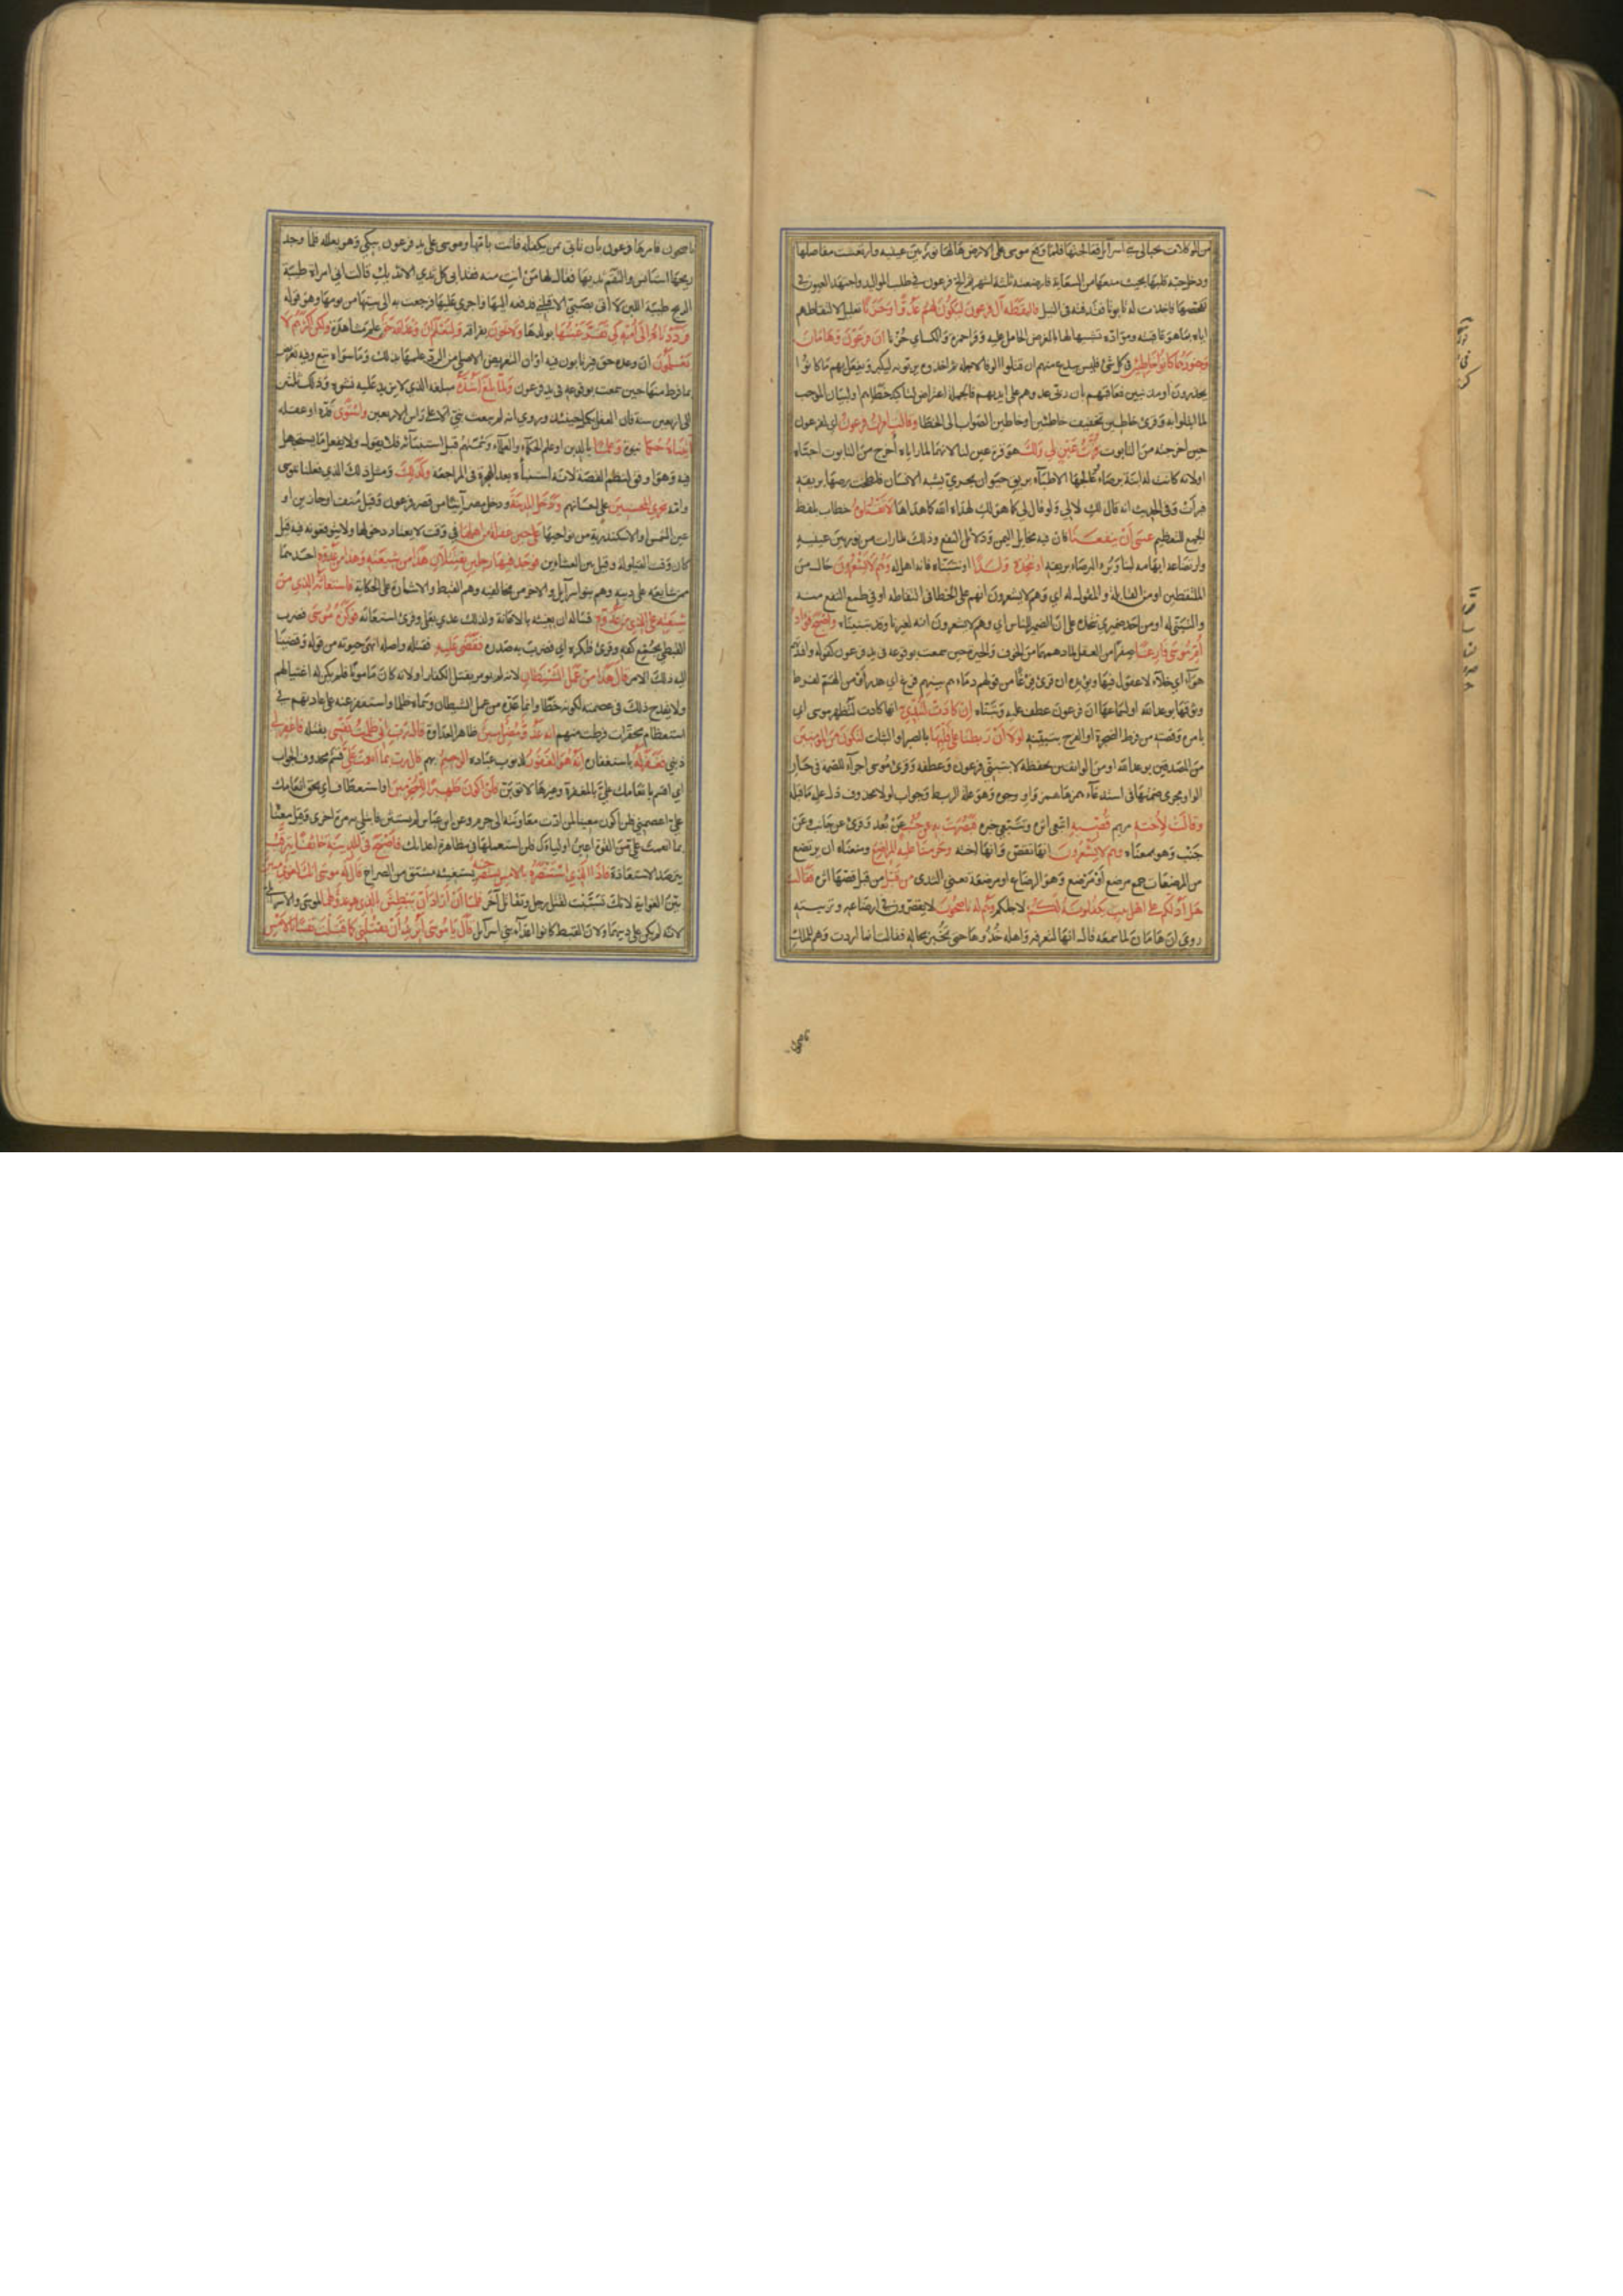 من الموكلات بحبالى بني اسرآئيل فعالجتها فلما وقع موسى على الارض هالها نور بين عينيه وارتعشت مفاصلها
ودخل حبه قلبها بحيث منعها من السعاية فارضعته ثلثة اشهر ثم الح فرعون في طلب المواليد واجتهد العيون في
تفحصها فاخذت له تابوتا فقذفته في النيل فالتقطه آل فرعون ليكون لهم عدوا وحزنا تعليل لالتقاطهم
اياه بما هو عاقبته ومؤداه تشبيها له بالغرض الحامل عليه وقرأ حمزة والكسائي حزنا ان فرعون وهامان
وجنودهما كانوا خاطئين في كل شئ فليس ببدع منهم ان قتلوا الوفا لاجله ثم اخذوه يربونه ليكبر ويفعل بهم ما كانوا
يحذرون او مذنبين فعاقبهم بان ربى عدوهم على ايديهم فالجملة اعتراض لتاكيد خطائهم او لبيان الموجب
لما ابتلوا به وقرئ خاطين تخفيف خاطئين او خاطين الصواب الى الخطا وقالت امرأت فرعون اي لفرعون
حين اخرجته من التابوت قرت عين لي ولك هو قرة عين لنا لانهما لما راياه أخرج من التابوت احباه
او لانه كانت له ابنة برصاء عالجها الاطبآء بريق حيوان بحري يشبه الانسان فلطخت برصها بريقه
فبرأت وفي الحديث انه قال لك لا لي ولو قال لي كما هو لك لهداه الله كما هداها لا تقتلوه خطاب بلفظ
الجمع للتعظيم عسى أن ينفعنا فان فيه مخايل اليمن ودلائل النفع وذلك لما رات من نور بين عينيه
وارتضاعه ابهامه لبنا وبرء البرصاء بريقه او نتخذه ولدا او نتبناه فانه اهل له وهم لا يشعرون حال من
الملتقطين او من القائلة والمقول له اي وهم لا يشعرون انهم على الخطا في التقاطه او في طمع النفع منه
والتبني له او من احد ضميري نتخذه على ان الضمير للناس اي وهم لا يشعرون انه لغيرنا وقد تبنيناه واصبح فؤاد
أم موسى فارغا صفرا من العقل لما دهمها من الخوف والحيرة حين سمعت بوقوعه في يد فرعون كقوله وافئدتهم
هوآء اي خلآء لا عقول فيها ويؤيده ان قرئ فرغا من قولهم دماءهم بينهم فرغ اي هدر أو من الهم لفرط
وثوقها بوعد الله او لسماعها ان فرعون عطف عليه وتبناه إن كادت لتبدي به انها كادت لتظهر بموسى اي
بامره وقصته من فرط الضجرة او الفرح بتبنيه لولا أن ربطنا على قلبها بالصبر والثبات لتكون من المؤمنين
من المصدقين بوعد الله او من الواثقين بحفظه لا بتبني فرعون وعطفه وقرئ مؤسى اجرآء للضمة في جار
الواو مجرى ضمتها في استدعآء همزها همز واو وجوه وهو علة الربط وجواب لولا محذوف دل عليه ما قبله
وقالت لأخته مريم قصيه اتبعي اثره وتتبعي خبره فبصرت به عن جنب عن بعد وقرئ عن جانب وعن
جنب وهو بمعناه وهم لا يشعرون انها تقص وانها اخته وحرمنا عليه المراضع ومنعناه ان يرتضع
من المرضعات جمع مرضع أو مرضع وهو الرضاع او موضعه يعني الثدى من قبل من قبل قصها اثره فقالت
هل أدلكم على اهل بيت يكفلونه لكم لاجلكم وهم له ناصحون لا يقصرون في ارضاعه وتربيته
روي ان هامان لما سمعه قال انها لتعرفه واهله خذوها حتى تخبر بحاله فقالت انما اردت وهم للملك
ناصحون
ناصحون فامرها فرعون بان تاتي بمن يكفله فاتت بامها وموسى على يد فرعون يبكي وهو يعلله فلما وجد
ريحها استانس والتقم ثديها فقال لها من انت منه فقد ابى كل ثدي الا ثديك قالت اني امراة طيبة
الريح طيبة اللبن لا أوتى بصبي الا قبلني فدفعه اليها واجرى عليها فرجعت به الى بيتها من يومها وهو قوله
فرددناه الى أمه كي تقر عينها بولدها ولا تحزن بفراقه ولتعلم ان وعد الله حق علم مشاهدة ولكن اكثرهم لا
يعلمون ان وعده حق فيرتابون فيه او ان الغرض الاصلي من الرد علمها بذلك وما سواه تبع وفيه تعريض
بما فرط منها حين سمعت بوقوعه في يد فرعون ولما بلغ أشده مبلغه الذي لا يزيد عليه نشوه وذلك من ثلثين
الى اربعين سنة فان العقل يكمل حينئذ وروي انه لم يبعث نبي الا على راس الاربعين واستوى قده او عقله
آتيناه حكما نبوة وعلما بالدين او علم الحكمآء والعلمآء وسمتهم قبل استنبائه فلا يقول ولا يفعل ما يستجهل
فيه وهو اوفق لنظم القصة لانه استنبأه بعد الهجرة في المراجعة وكذلك ومثل ذلك الذي فعلنا بموسى
وامه نجزي المحسنين على احسانهم ودخل المدينة ودخل مصر آتيا من قصر فرعون وقيل منف او حابين او
عين الشمس او الاسكندرية من نواحيها على حين غفلة من اهلها في وقت لا يعتاد دخولها ولا يتوقعونه فيه قيل
كان وقت القيلولة وقيل بين العشائين فوجد فيها رجلين يقتتلان هذا من شيعته وهذا من عدوه احدهما
ممن شايعه على دينه وهم بنو اسرآئيل والاخر من مخالفيه وهم القبط والاشارة على الحكاية فاستغاثه الذي من
شيعته على الذي من عدوه فساله ان يغيثه بالاعانة ولذلك عدي بعلى وقرئ استعانه فوكزه موسى فضرب
القبطي بجمع كفه وقرئ فلكزه اي فضرب به صدره فقضى عليه فقتله واصله انهى حيوته من قوله وقضينا
اليه ذلك الامر قال هذا من عمل الشيطان لانه لم يؤمر بقتل الكفار او لانه كان مامونا فلم يكن له اغتيالهم
ولا يقدح ذلك في عصمته لكونه خطا وانما عده من عمل الشيطان وسماه ظلما واستغفر عنه على عادتهم في
استعظام محقرات فرطت منهم انه عدو مضل مبين ظاهر العداوة قال رب اني ظلمت نفسي بقتله فاغفر لي
ذنبي فغفر له باستغفاره إنه هو الغفور لذنوب عباده الرحيم بهم قال رب بما أنعمت علي قسم محذوف الجواب
اي اقسم بانعامك علي بالمغفرة وغيرها لاتوبن فلن أكون ظهيرا للمجرمين او استعطاف اي بحق انعامك
علي اعصمني فلن اكون معينا لمن ادت معاونته الى جرم وعن ابن عباس لم يستثن فابتلي به مرة اخرى وقيل معناه
بما انعمت علي من القوة اعين اولياءك فلن استعملها في مظاهرة اعدائك فاصبح في المدينة خائفا يترقب
يترصد الاستقادة فاذا الذي استنصره بالامس يستصرخه يستغيثه مشتق من الصراخ قال له موسى انك لغوي مبين
بين الغواية لانك تسببت لقتل رجل وتقاتل آخر فلما أن أراد أن يبطش بالذي هو عدو لهما لموسى والاسرائيلي
لانه لم يكن على دينهما ولان القبط كانوا اعدآء بني اسرآئيل قال يا موسى أتريد أن تقتلني كما قتلت نفسا بالامس